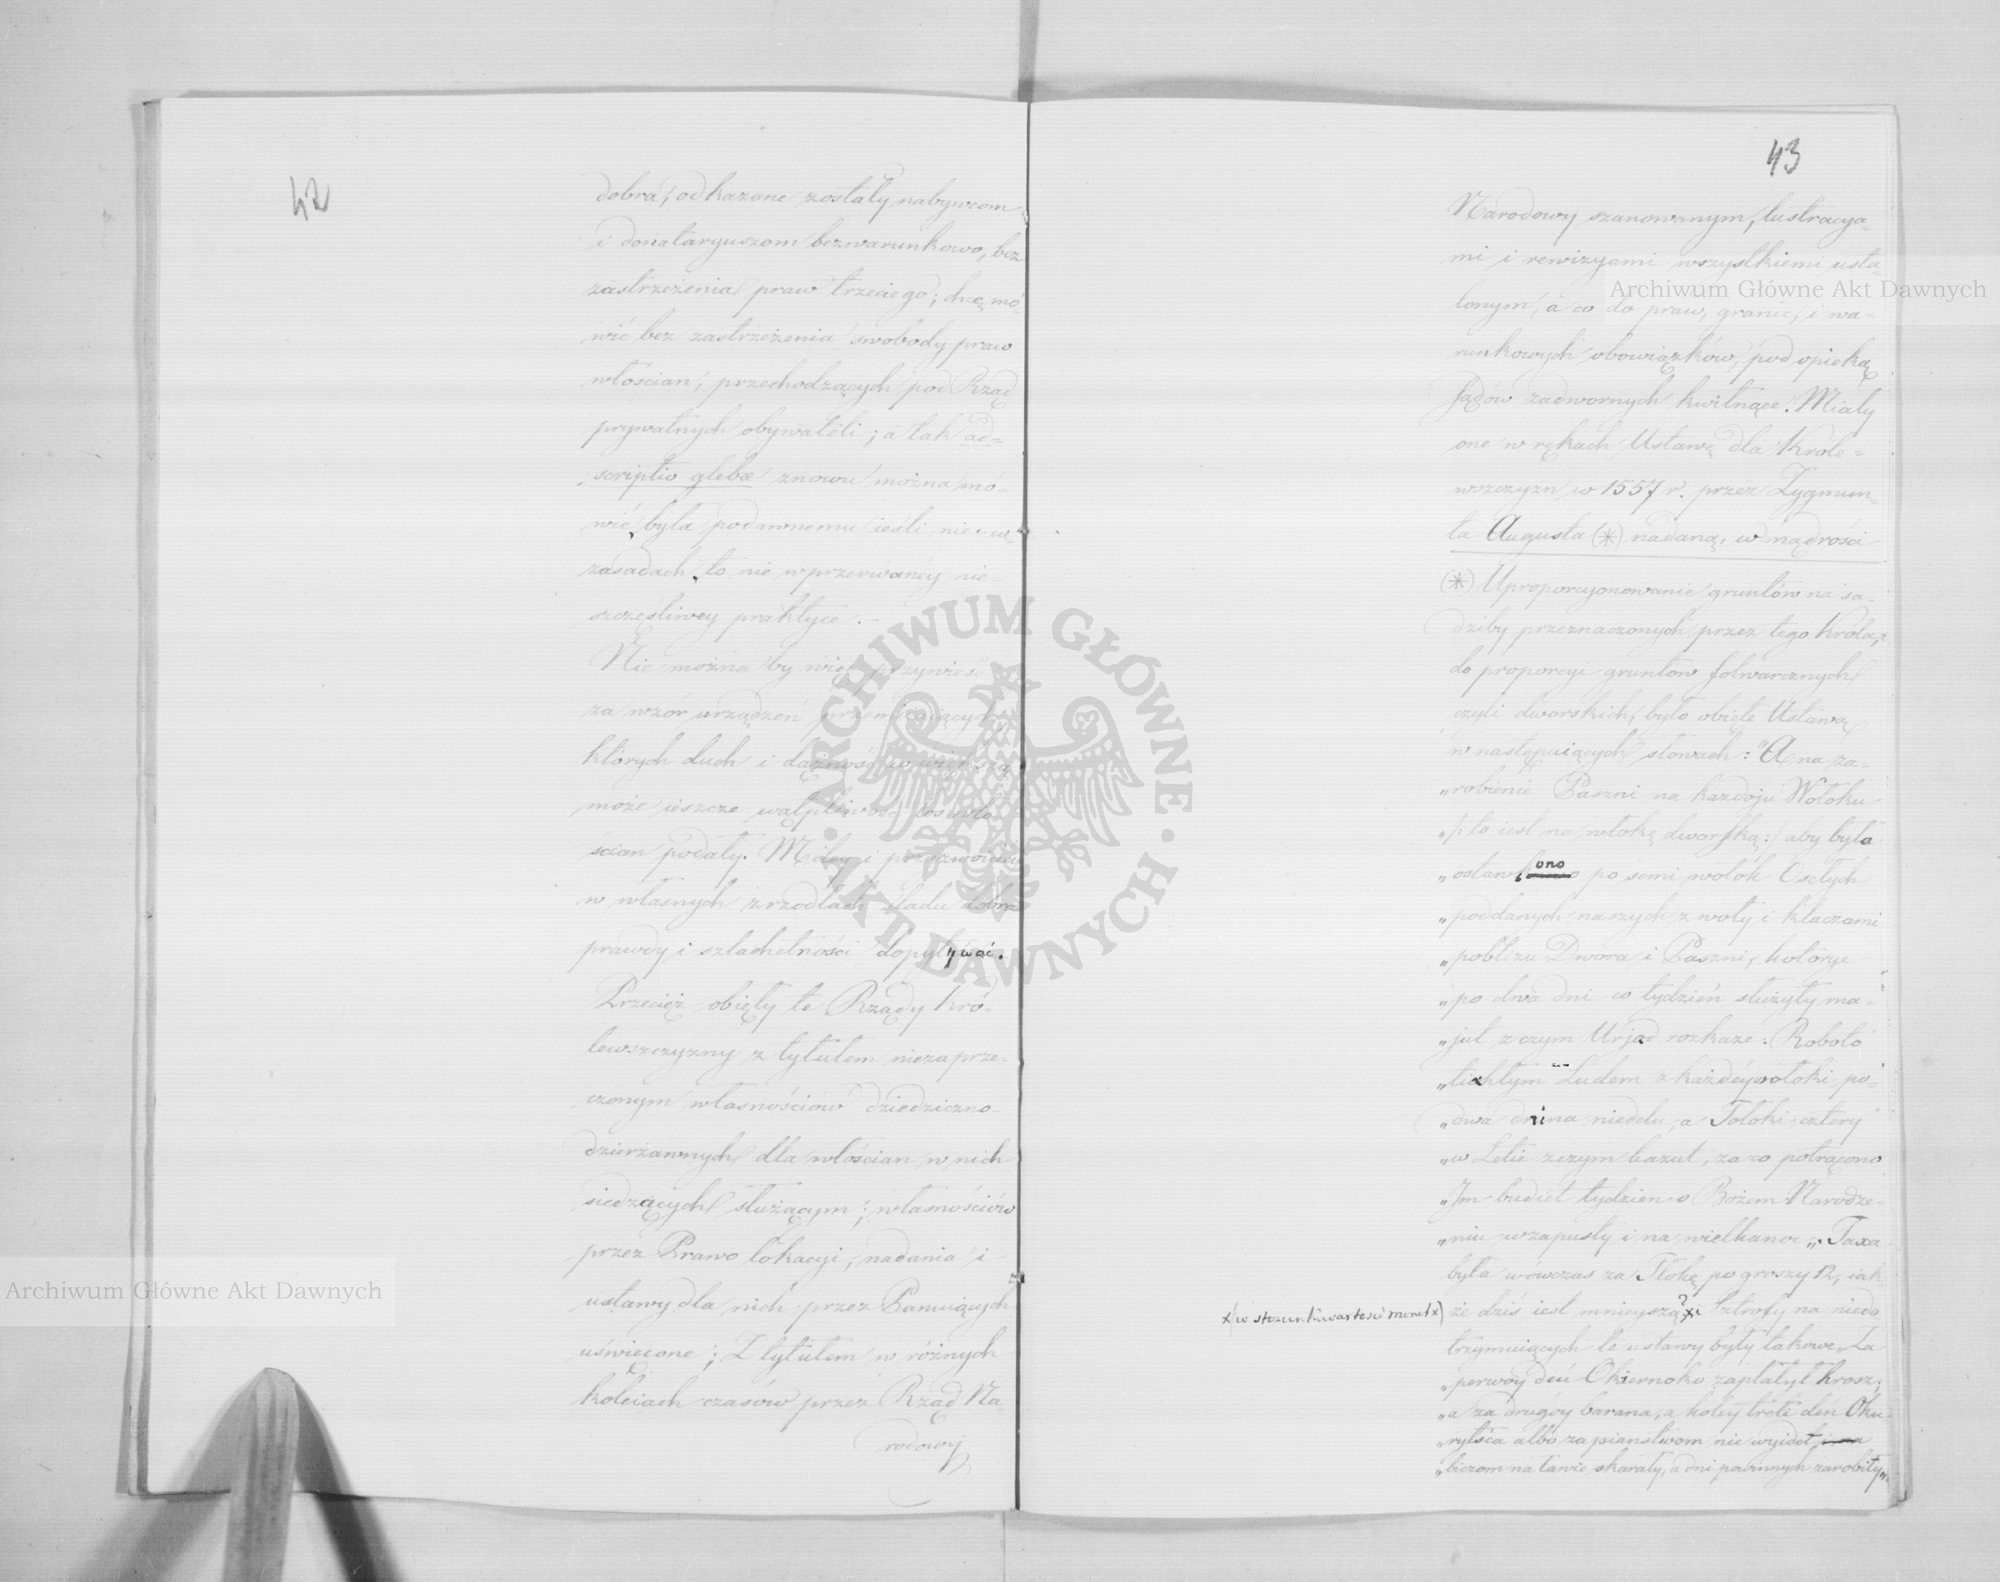 42
dobra, odkazane zostały nabywcom
i donataryuszom bezwarunkowo, bez
zastrzeżenia praw trzeciego; chcę mó-
wić bez zastrzeżenia swobody praw
włościan, przechodzących pod Rząd
prywatnych obywateli; a tak ad-
scriptio glebæ znowu można mó-
wić, była podawnemu ieśli nie w
zasadach, to nie w przerwanéy nie-
szczęśliwey praktyce.-
Nie można by więc przywieść
za wzór urządzeń przemiiaiących,
których duch i dążność w większą
może ieszcze wątpliwość los wło-
ścian podały. Miley i przyzwoiciey
w własnych zrzodłach śladu dobra
prawdy i szlachetności dopytywać.
Przecięż obięły te Rządy Kró-
lewszczyzny z tytułem nieza prze-
czonym własnościow dziedziczno-
dzierżawnych dla włościan w nich
siedzących służącym; własnościów
przez Prawo lokacyi, nadania i
ustawy dla nich przez Panuiących
uświęcone; I tytułem w różnych
koleiach czasów przez Rząd Na-
rodowy
43
Narodowy szanowanym, lustracya-
mi i rewizyami wszystkiemi usta-
lonym, a co do praw, granic, i wa-
runkowych obowiązków, pod opieką
Sądów zadwornych kwitnące. Miały
one w rękach Ustawę dla Króle-
wszczyzn w 1557 r. przez Zygmun-
ta Augusta (*) nadaną, w mądrości
(*) Uproporcyonowanie gruntów na sa-
dziby przeznaczonych przez tego Króla,
do proporcyi gruntów folwarcznych
czyli dworskich, było obięte Ustawą
w następuiących słowach: "A na za-
„robienie Paszni na każdoju Wołoku
„/: to iest na włokę dworską :/ aby było
„ostawleno uno po semi wołok Osełych
„poddanych naszych z woły i klaczami
„poblizu Dwora i Paszni, kotorye
„po dwa dni co tydzień służyty ma-
„jut z czym Urjad rozkaze: Roboto
„tiahłym Ludem z każdéy wołoki po
„dwa dni na niedelu, a Tołoki cztery
„w Letie z czym kazut, za co potrącono
„Im budiet tydzien o Bożem Narodze-
„niu w zapusty i na wielkanoc„. Taxa
była wówczas za Tłokę po groszy 12, iak
x/(w stosunku wartości monet x) że dziś iest mnieyszą? x Sztrofy na niedo
trzymuiących te ustawy były takowe „Za
„perwoy deń Okiernoku zapłatyt hrosz;
„a za drugóy barana, a koley tréti den Oku
„rytsca albo za pianstwom nie wyidet
„biczom na ławie skaraty, a dni powinnych zarobity„.
Archiwum Główne Akt Dawnych
Archiwum Główne Akt Dawnych
ARCHIWUM GŁÓWNE · AKT DAWNYCH ·